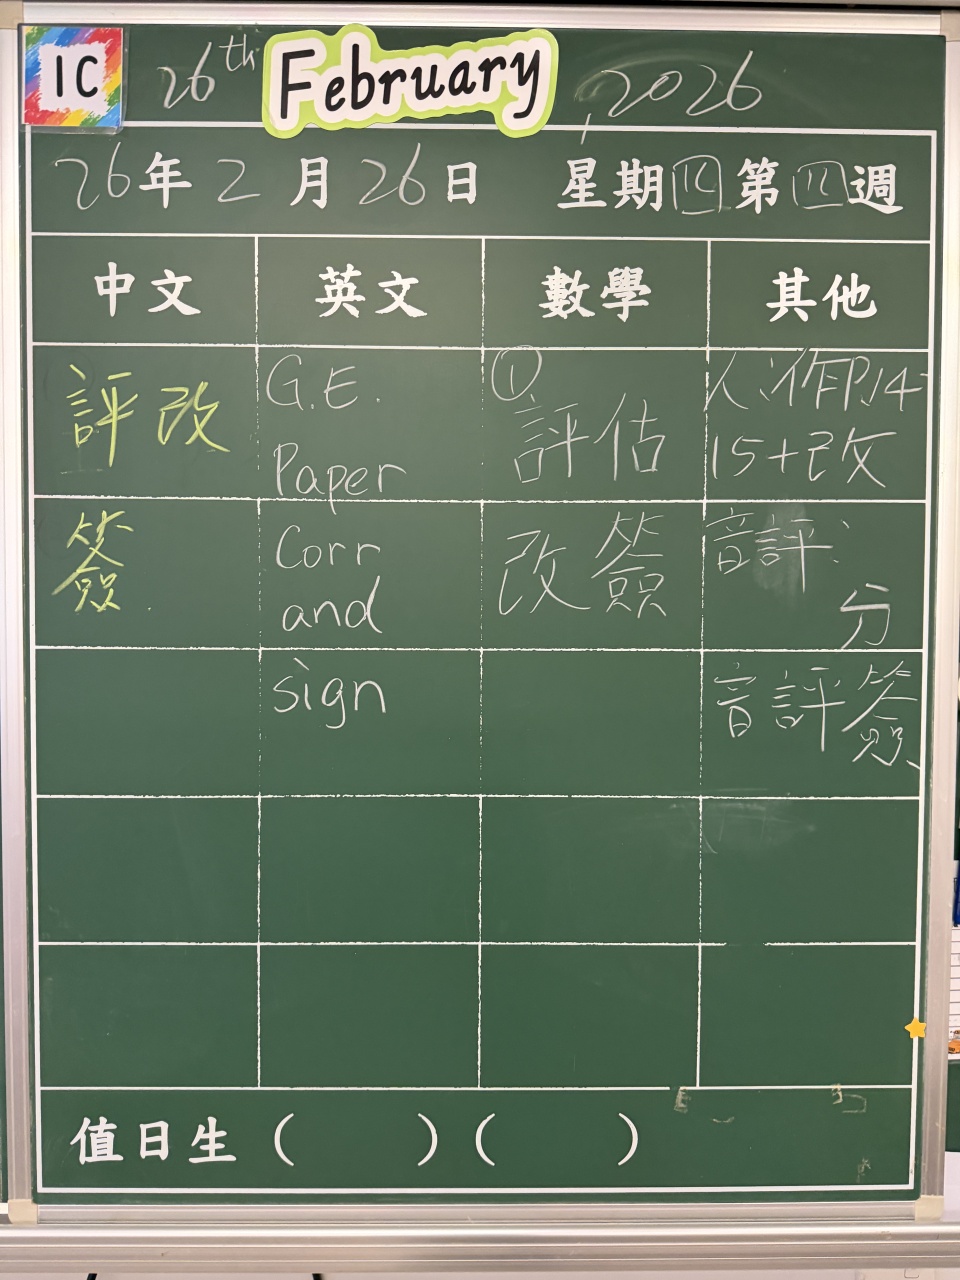 1C
26th February, 2026
26年2月26日 星期四第四週
中文 英文 數學 其他
評改
簽
G.E.
Paper
Corr
and
sign
①
評估
改簽
人作P.14-
15+改
音評:
分
音評簽
值日生( )( )